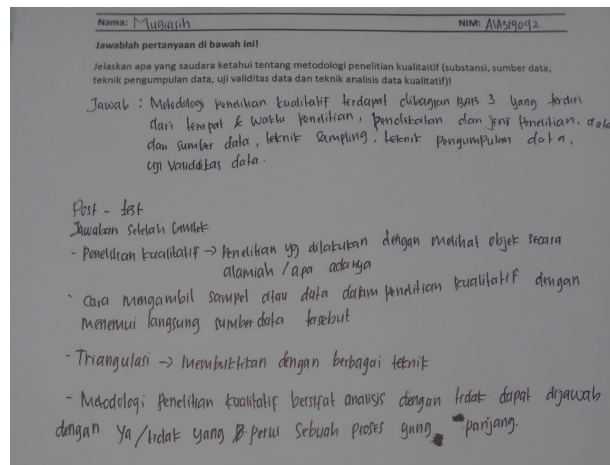 Nama: Mugiasih NIM: A1A519092
Jawablah pertanyaan di bawah ini!
Jelaskan apa yang saudara ketahui tentang metodologi penelitian kualitaitif (substansi, sumber data,
teknik pengumpulan data, uji validitas data dan teknik analisis data kualitatif)!
Jawab : Metodologi penelitian kualitatif terdapat dibagian BAB 3 yang terdiri
dari tempat & waktu penelitian, pendekatan dan jenis penelitian, data
dan sumber data, teknik sampling, teknik pengumpulan data,
uji validitas data.
Post - test
Jawaban setelah
- Penelitian kualitatif → Penelitian yg dilakukan dengan melihat objek secara
alamiah / apa adanya
- Cara mengambil sampel atau data dalam penelitian kualitatif dengan
menemui langsung sumber data tersebut
- Triangulasi → membuktikan dengan berbagai teknik
- Metodologi penelitian kualitatif bersifat analisis dengan tidak dapat dijawab
dengan Ya / tidak yang perlu sebuah proses yang panjang.